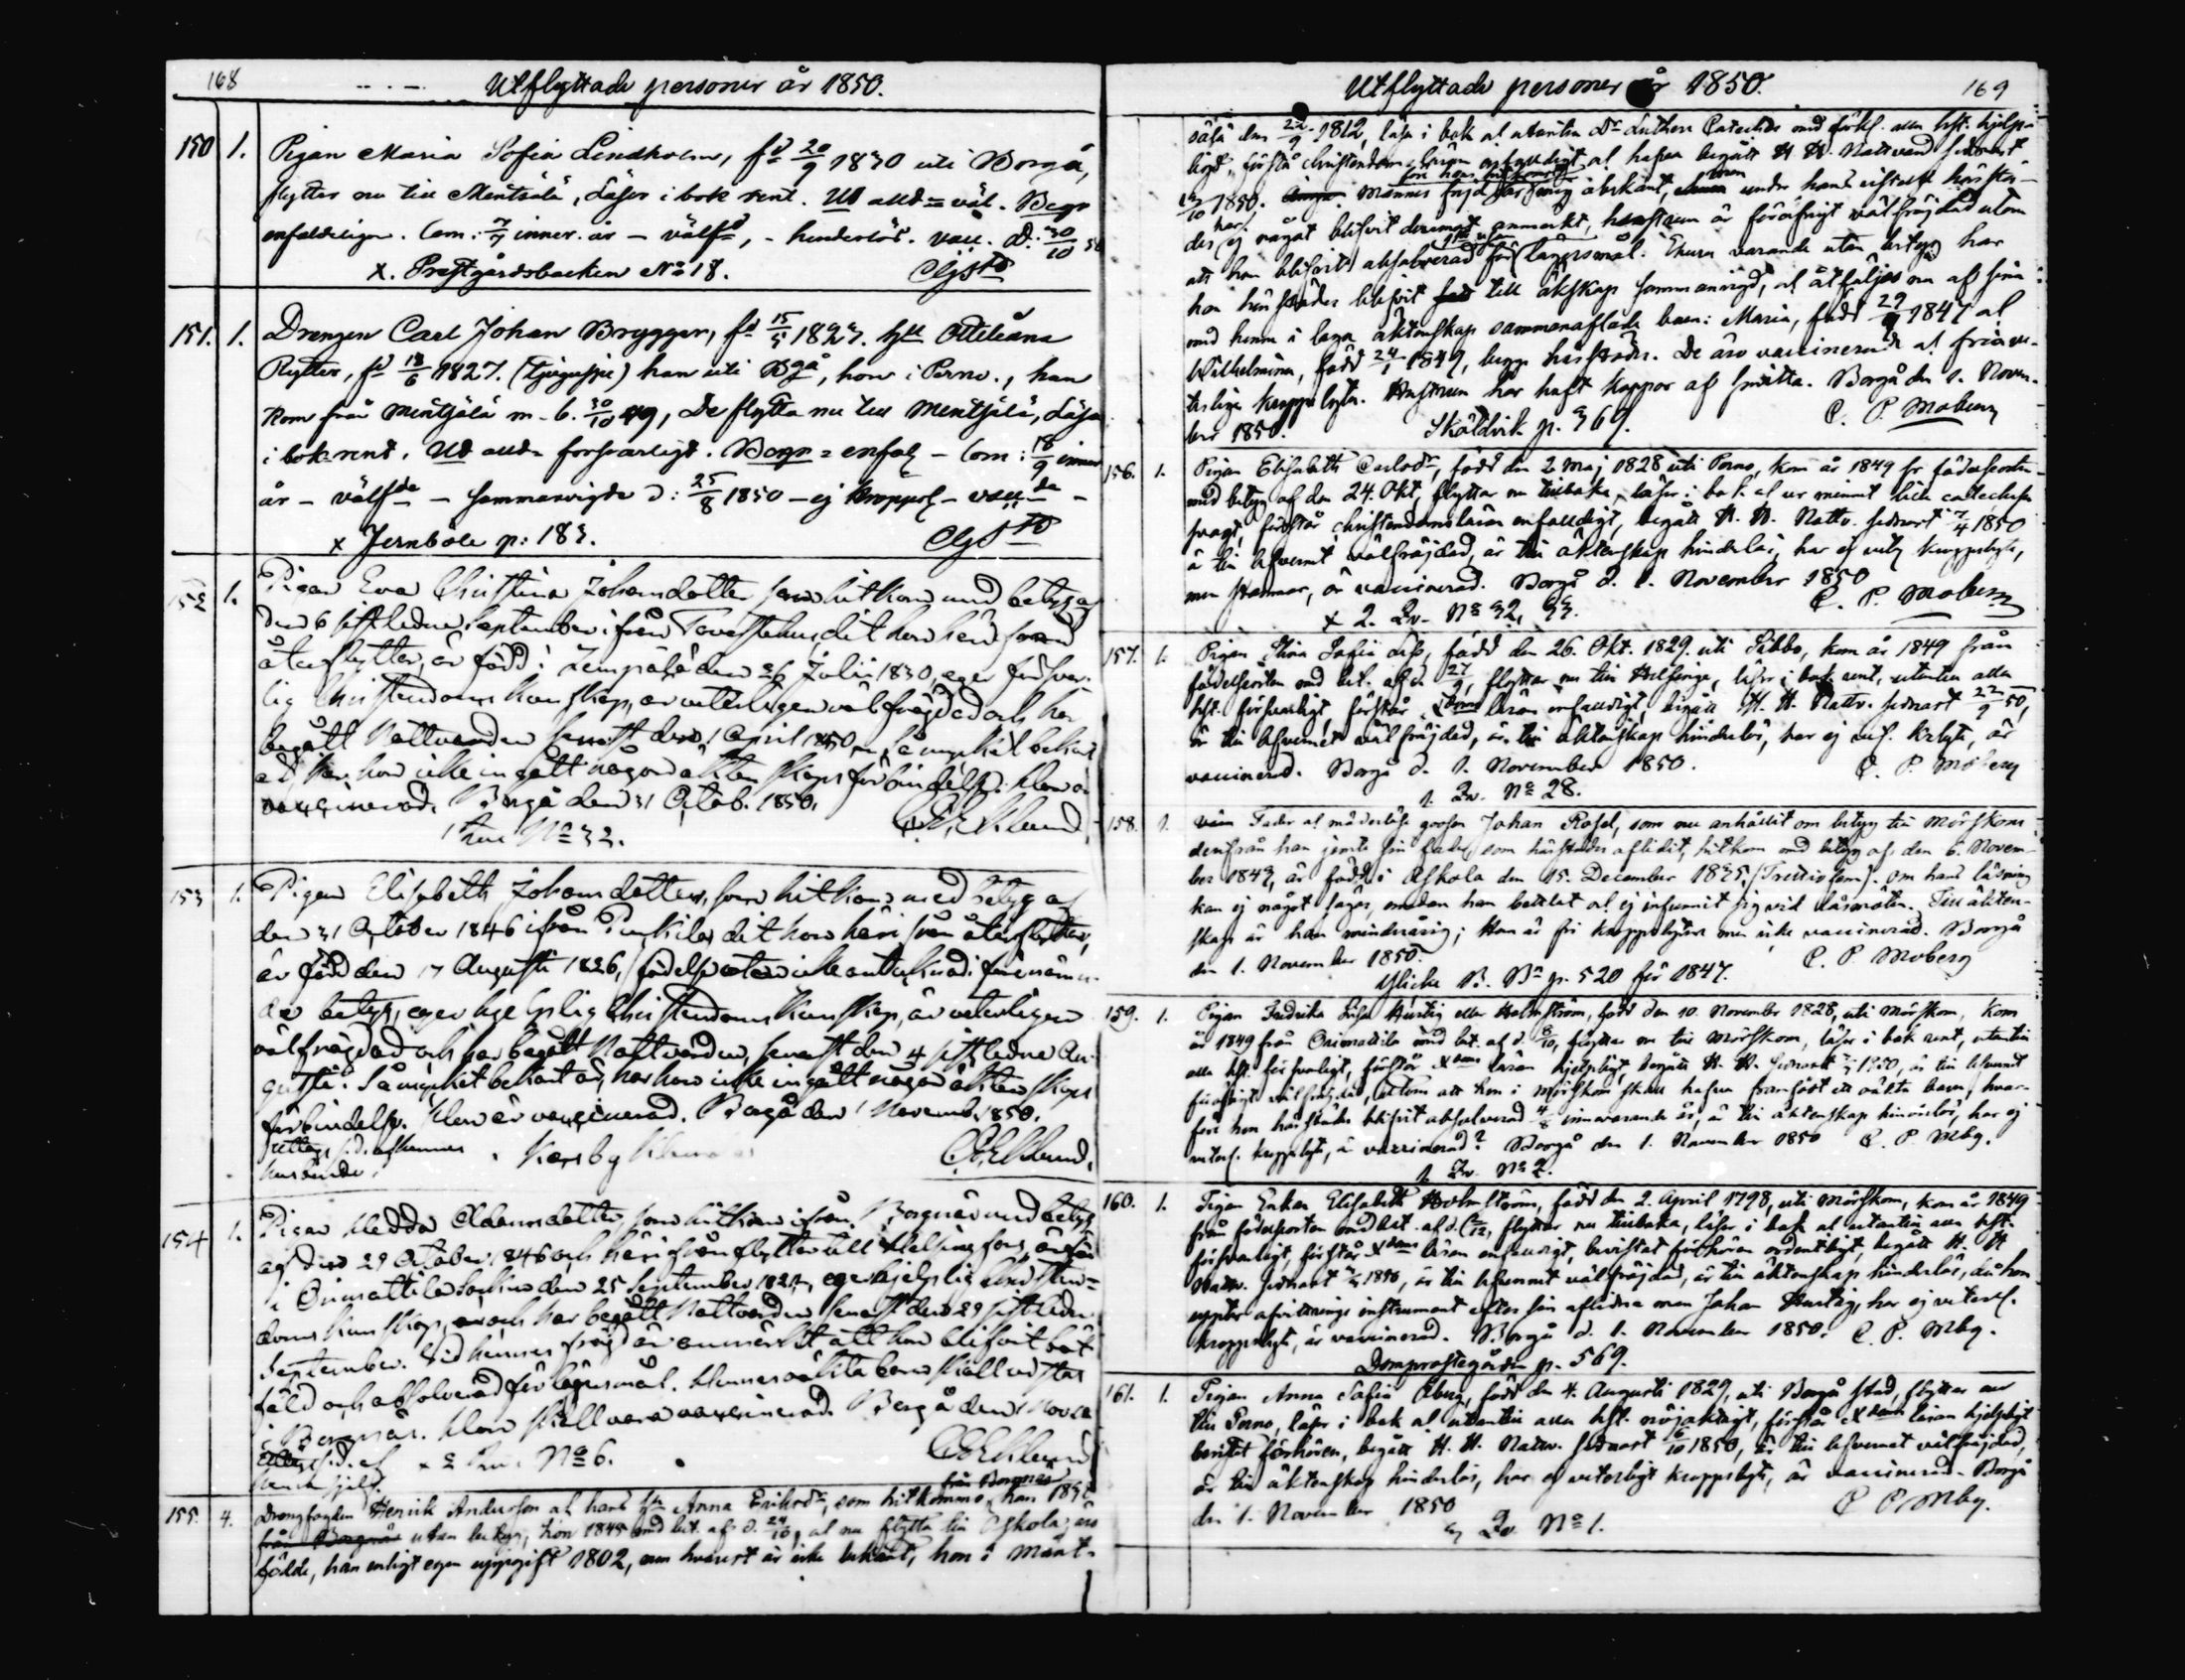 168
Utflyttade personer år 1850.
150 1. Pigan Maria Sofia Lindholm, fd 20/9 1830 uti Borgå,
flyttar nu till Mentsälä, Läser i bok rent. Ut andt = väl. Begr
enfaldeligen. Com: 7/7 inner. år - välfd, - hinderlös. vacc. D: 30/10 50
x. Prestgårdsbacken No 18.
151. 1. Drengen Carl Johan Brygger, fd 15/5 1823. hu Ottiliana
Rytter, fd 18/6 1827. han uti Bgå, hon i Perno., han
kom från Mentsälä m. b. 30/10 49, De flytta nu till Mentsälä, Läsa
i bok rent. Ut andt försvarligt. Begr = enfal - Com: 18/9 inner
år - välfde - Sammanvigde d: 25/8 1850 - ej kroppsl - vacc de -
x Jernböle p: 183.
152 1. Pigan Eva Christina Johansdotter som hitkom med betyg af
den 6 sistledne September ifrån Tavastehus, dit hon härifrån
återflyttar, är född i Lempälä den 26 Julii 1830, eger försvar-
lig Christendoms kunskap, är veterligen välfrägdad och har
begått Nattvarden senast den 1 April 1850. Så mycket bekant
är, har hon icke ingått någon äktenskaps förbindelse. Hon är
vaccinerad. Borgå den 31 Octob. 1850.
No 32.
153 1. Pigan Elisabeth Johansdotter, som hitkom med betyg af
den 31 October 1846 ifrån Pukkila dit hon härifrån återflyttar,
är född den 17 Augusti 1826, födelseorten icke antecknad i förenämn-
da betyg, eger hjelplig Christendoms kunskap, är veterligen
välfrägdad och har begått Nattvarden, senast den 4 sistledne Au-
gusti. Så mycket bekant är, har hon icke ingått någon äktenskaps
förbindelse. Hon är vaccinerad. Borgå den 1 Novemb. 1850.
154 1. Pigan Hedda Adamsdotter, som hitkom ifrån Borgnäs med betyg
af den 29 October 1846 och härifrån flyttar till Helsingfors, är född
i Orimattila socken den 25 September 1824, eger hjelplig Christen-
doms kunskap, och har begått Nattvarden senast den 29 sistledne
September. Vid hennes frägd är anmärkt att hon blifvit bot-
fäld och absolverad för lägersmål. Hennes oäkta barn skall vistas
i Borgnäs. Hon skall vara vaccinerad. Borgå den 1 Nov.
No 6.
från Borgnäs
155. 4. Drengfogden Henrik Andersson at hans hu Anna Eriksdr, som hitkommo, han
från Borgnäs utan betyg, hon 1845 med bet. af d. 24/10, at nu flytta till Askola; äro
födde, han enligt egen uppgift 1802, men hvarest är icke bekant, hon i Mänt-
Utflyttade personer år 1850.
169
sälä den 22/9 1812, läsa i bok at utantill Dr Luthers Cateches med förkl. allen hft. hjelp-
ligt, förstå Christendomsläran enfaldigt at hafva begått H. H. Nattvard sednast
/10 1850. Mannens frejd före hans hitkomst obekant, men under hans vistelse härstä-
des har ej något blifvit deremot anmärkt, hustrun är föröfrigt välfräjdad utom
att hon blifvit absolverad för lägersmål. Ehuru varande utan betyg har
han härstädes blifvit till äktskap sammanvigd, at åtföljes nu af sina
med henne i laga äktenskap sammanaflade barn: Maria, född 29/9 1847 at
Wilhelmina, född 24/1 1849, begge härstädes. De äro vaccinerade at fria ve-
terliga kroppslyten. Hustrun har haft koppor af smitta. Borgå den 1. Novem-
ber 1850.
Sköldvik p. 369.
C. P. Moberg
156. 1. Pigan Elisabeth Carlsdr, född den 2 Maj 1828 uti Perno, kom år 1849 fr födelseorten
med betyg af den 24. Okt, flyttar nu tillbaka, läser i bok at ur minnet lilla catechesen
svagt, förstår christendomsläran enfaldigt, begått H. H. Nattv. sednast 7/4 1850
är till lefvernet välfräjdad, är till äktenskap hinderlös, har ej vetl. kroppslyte,
men stammar, är vaccinerad. Borgå d. 1. November 1850
C. P. Moberg
x 2. Qv. No 32, 33.
157. 1. Pigan Stina Sofia, född den 26. Okt. 1829. uti Sibbo, kom år 1849 från
födelseorten med bet. af d. 27/9, flyttar nu till Helsinge, läser i bok rent, utantill allen
hft. försvarligt, förstår Xdoms läran enfaldigt, begått H. H. Nattv. sednast 22/9 50,
är till lefvernet välfräjdad, är till äktenskap hinderlös, har ej vetl. krlyte, är
vaccinerad. Borgå d. 1. November 1850.
C. P. Moberg
1. Qv. No 28.
158. 1. Fader at moderlöse gossen Johan Rosel, som nu anhållit om betyg till Mörskom
derifrån han jemte sin fader, som härstädes aflidit, hitkom med betyg af den 6. Novem-
ber 1843, är född i Askola den 15. December 1835. (Trettiofem). Om hans läsning
kan ej något sägas, emedan han betlat at ej infunnit sig vid läsmöten. Till äkten-
skap är han minderårig; Han är fri kroppslyten men icke vaccinerad. Borgå
den 1. November 1850.
C. P. Moberg
B. Bn p. 520 för 1847.
159. 1. Pigan Fredrika Lovisa Hurtig eller Holmström, född den 10. November 1828, uti Mörskom, kom
år 1849 från Orimattila med bet. af d. 8/10, flyttar nu till Mörskom, läser i bok rent, utantill
allen hft försvarligt, förstår Xdoms läran hjelpligt, begått H. H. sednast 1850, är till lefvernet
föröfrigt välfräjdad, utom att hon i Mörskom skall hafva framfödt ett oäkta barn, hvar-
före hon härstädes blifvit absolverad 4/8 innevarande år, är till äktenskap hinderlös, har ej
veterl. kroppslyte, är vaccinerad? Borgå den 1. November 1850 C. P. Mbg.
1 Qv. No 2.
160. 1. Pigan Enkan Elisabeth Holmström, född den 2. April 1798, uti Mörskom, kom år 1849
från födelseorten med bet. af d. /12, flyttar nu tillbaka, läser i bok at utantill allen hft.
försvarligt, förstår Xdoms läran enfaldigt, bevistat förhören ordentligt, begått H. H
Nattv. sednast 1850, är till lefvernet välfräjdad, är till äktenskap hinderlös, då hon
uppter afvittrings instrument efter sin aflidna man Johan Hurtig, har ej veterl.
kroppslyte, är vaccinerad. Borgå d. 1. November 1850. C. P. Mbg.
Domprostegården p. 569.
161. 1. Pigan Anna Sofia Öberg, född den 4. Augusti 1829, uti Borgå stad, flyttar nu
till Perno, läser i bok at utantill allen hft. nöjaktigt, förstår Xdoms läran hjelpligt
bevistat förhören, begått H. H. Nattv. sednast 6/10 1850, är till lefvernet välfräjdad,
är till äktenskap hinderlös, har ej veterligt kroppslyte, är vaccinerad. Borgå
den 1. November 1850
C P Mbg.
3 Qv No 1.